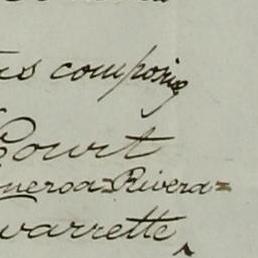 composing
Court
neroa=Rivera=
varrette,